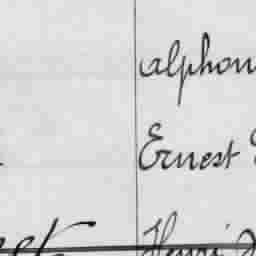 alphon
Ernest
Henri